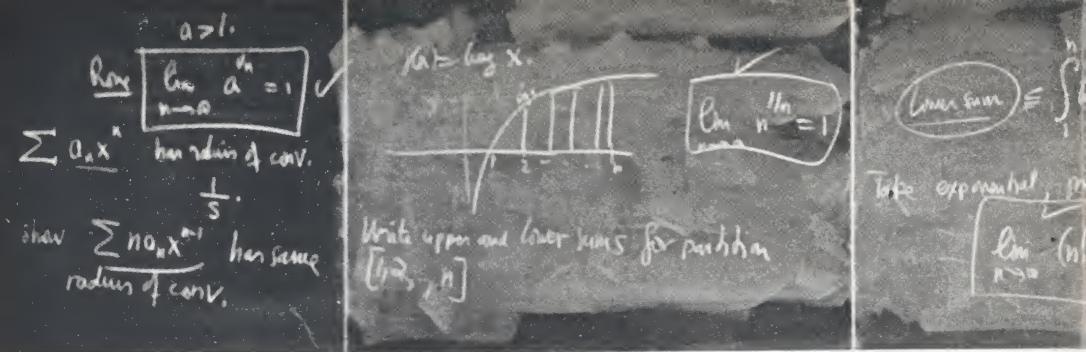 a > 1.
lim a^{1/n} = 1 ✓
n→∞
∑ a_n x^n has radius of conv.
1/s.
show ∑ n a_n x^{n-1} has same
radius of conv.
f(x) = log x.
1 2 n
✓
lim n^{1/n} = 1
n→∞
Write upper and lower sums for partition
[1,2, , n]
Lower sum ≤ ∫
n
1
Take exponential,
lim (n
n→∞